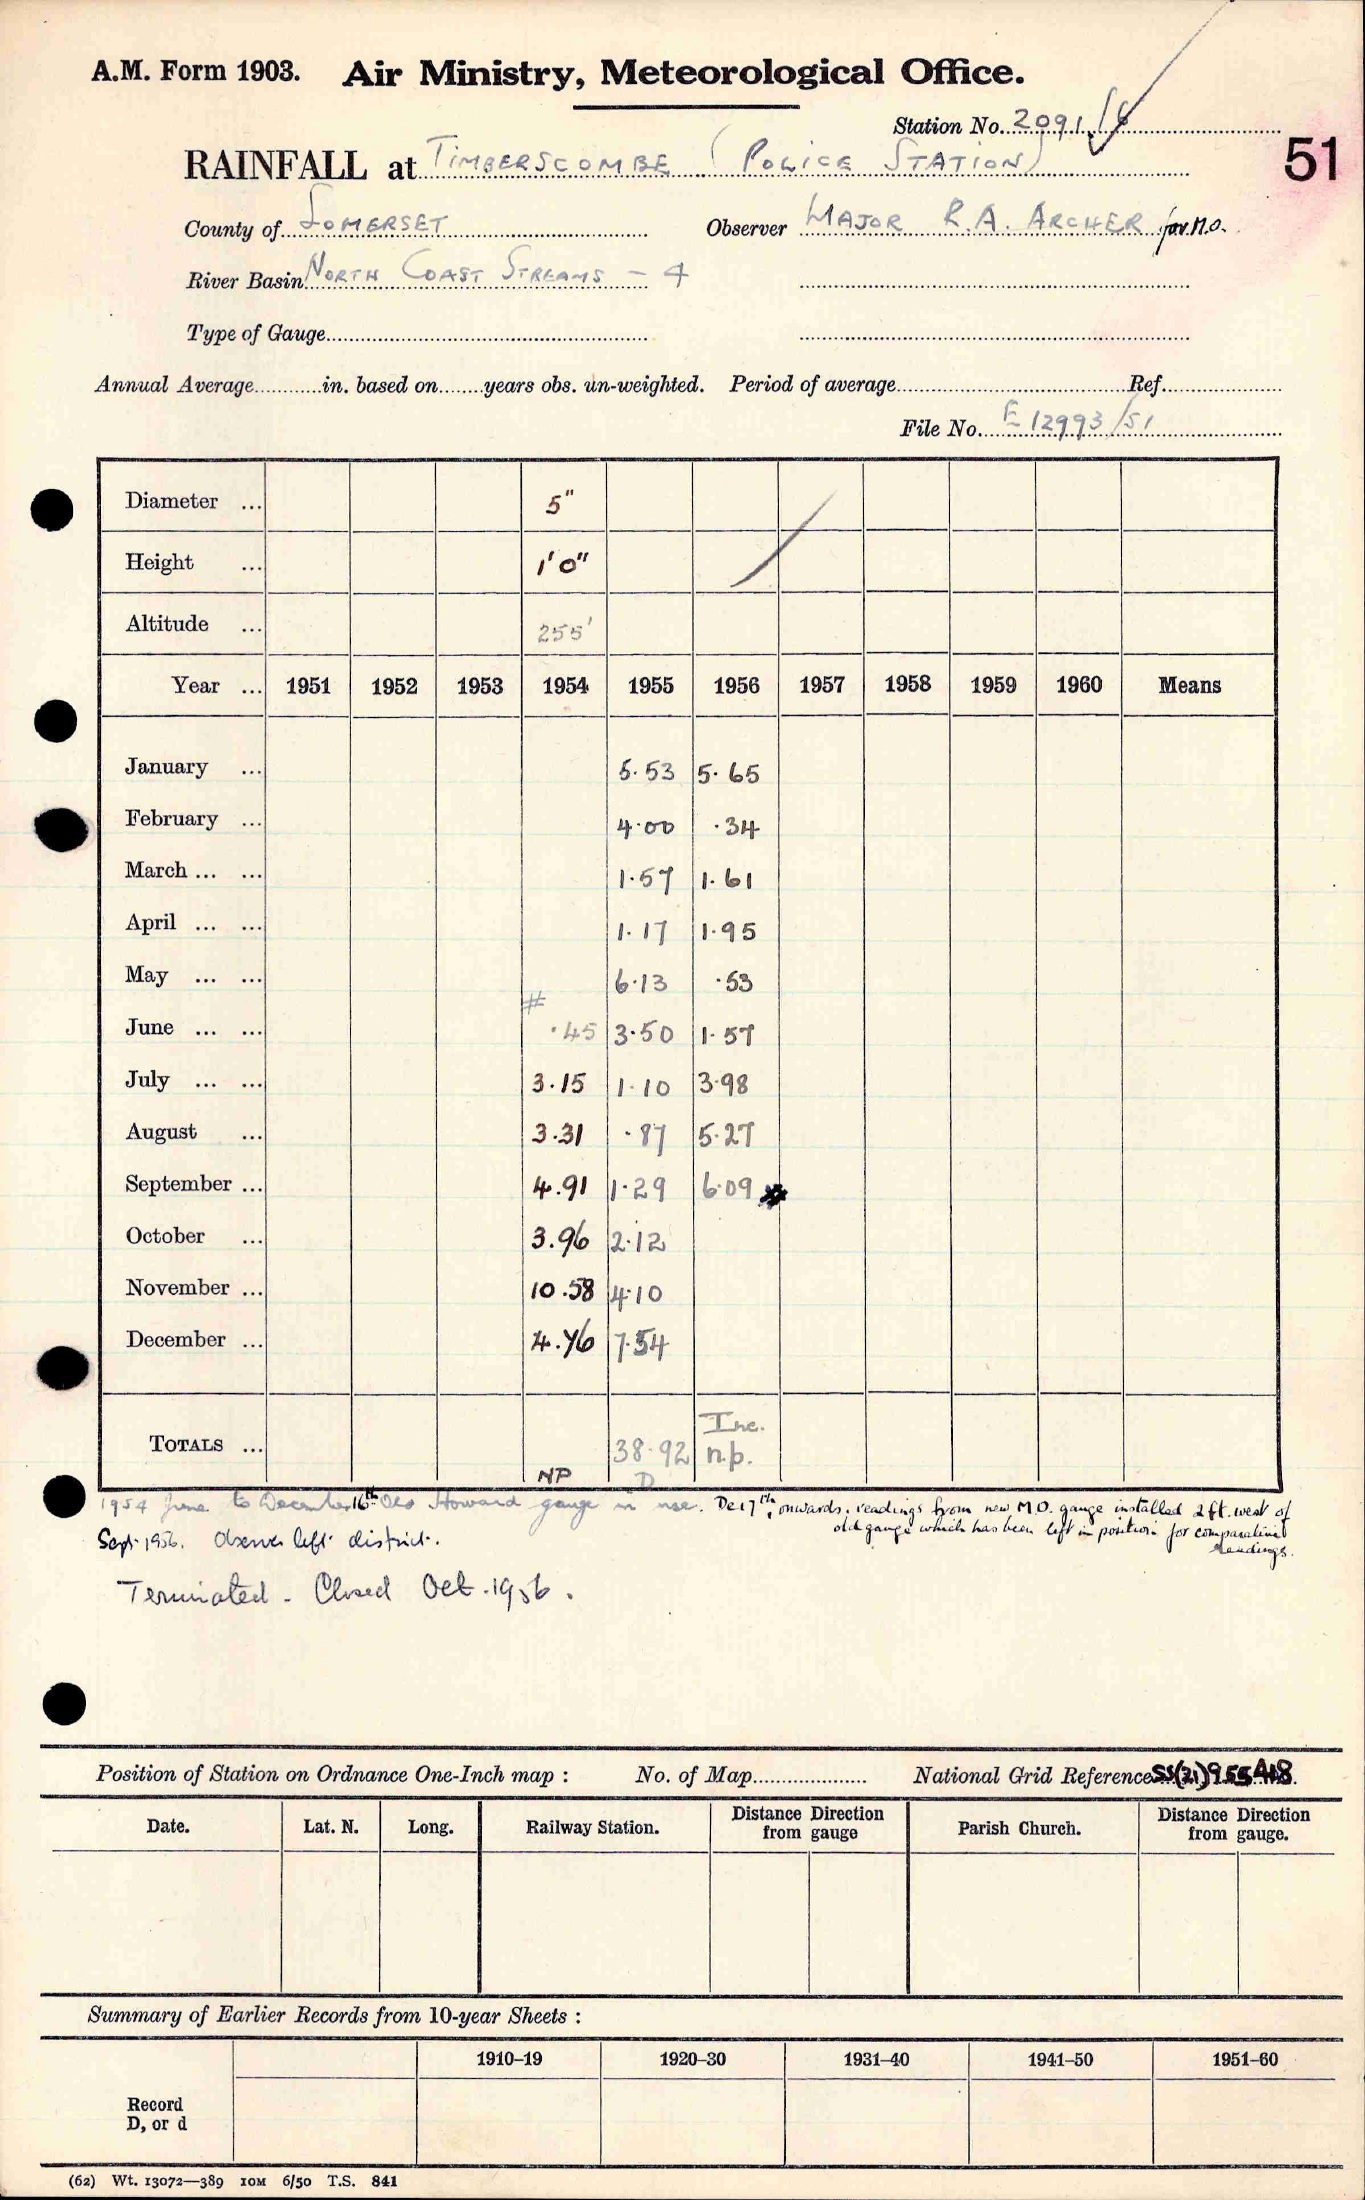 A.M. Form 1903. Air Ministry, Meteorological Office.
Station No. 2091/6
51
RAINFALL at TIMBERSCOMBE (POLICE STATION)
County of SOMERSET Observer MAJOR R.A. ARCHER for M.O.
River Basin NORTH COAST STREAMS - 4
Type of Gauge
Annual Average in. based on years obs. un-weighted. Period of average Ref.
File No. E 12993/51
Diameter ... 5"
Height ... 1'0"
Altitude ... 255'
Year ... 1951 1952 1953 1954 1955 1956 1957 1958 1959 1960 Means
January ... 5.53 5.65
February ... 4.00 .34
March ... ... 1.57 1.61
April ... ... 1.17 1.95
May ... ... 6.13 .53
#
June ... ... .45 3.50 1.57
July ... ... 3.15 1.10 3.98
August ... 3.31 .87 5.27
September ... 4.91 1.29 6.09 #
October ... 3.96 2.12
November ... 10.58 4.10
December ... 4.76 7.54
Inc.
TOTALS ... 38.92 n.p.
NP D
1954 June to December 16th Old Howard gauge in use. De 17th, onwards, readings from new M.O. gauge installed 2 ft. west of
old gauge which has been left in position for comparative
readings.
Sept. 1956. Observer left district.
Terminated - Closed Oct. 1956.
Position of Station on Ordnance One-Inch map : No. of Map National Grid Reference SS(21)955418
Date. Lat. N. Long. Railway Station. Distance Direction from gauge Parish Church. Distance Direction from gauge.
Summary of Earlier Records from 10-year Sheets :
1910–19 1920–30 1931–40 1941–50 1951–60
Record
D, or d
(62) Wt. 13072—389 10M 6/50 T.S. 841